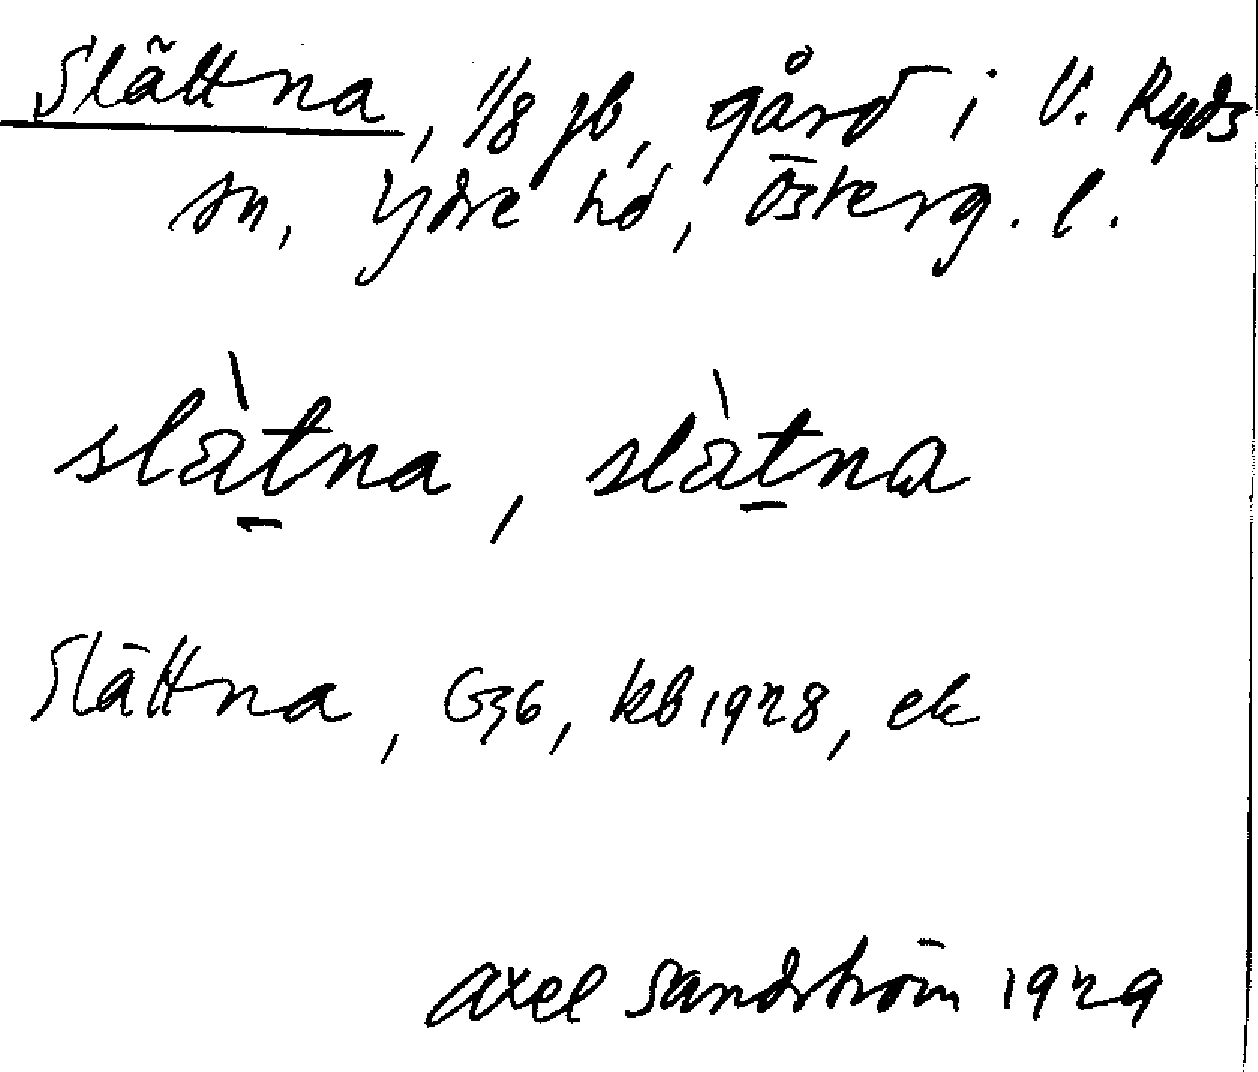 Slättna, 1/8 jb, gård i V. Ryds
sn, Ydre hd, Österg. l.
slàtna, slàtna
Slättna, G36, kb 1928, ek
Axel Sandström 1929